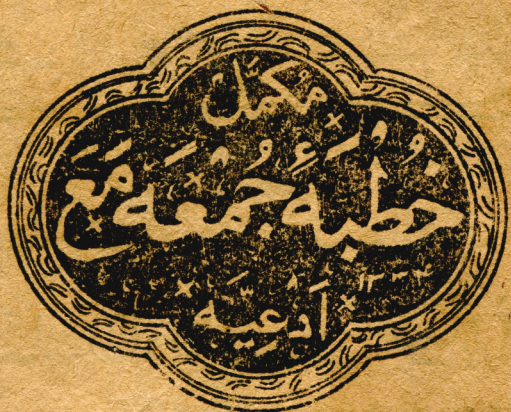 مُكمّل
خُطْبَۂ جُمُعَہ مَعَ
اَدْعِیَہ